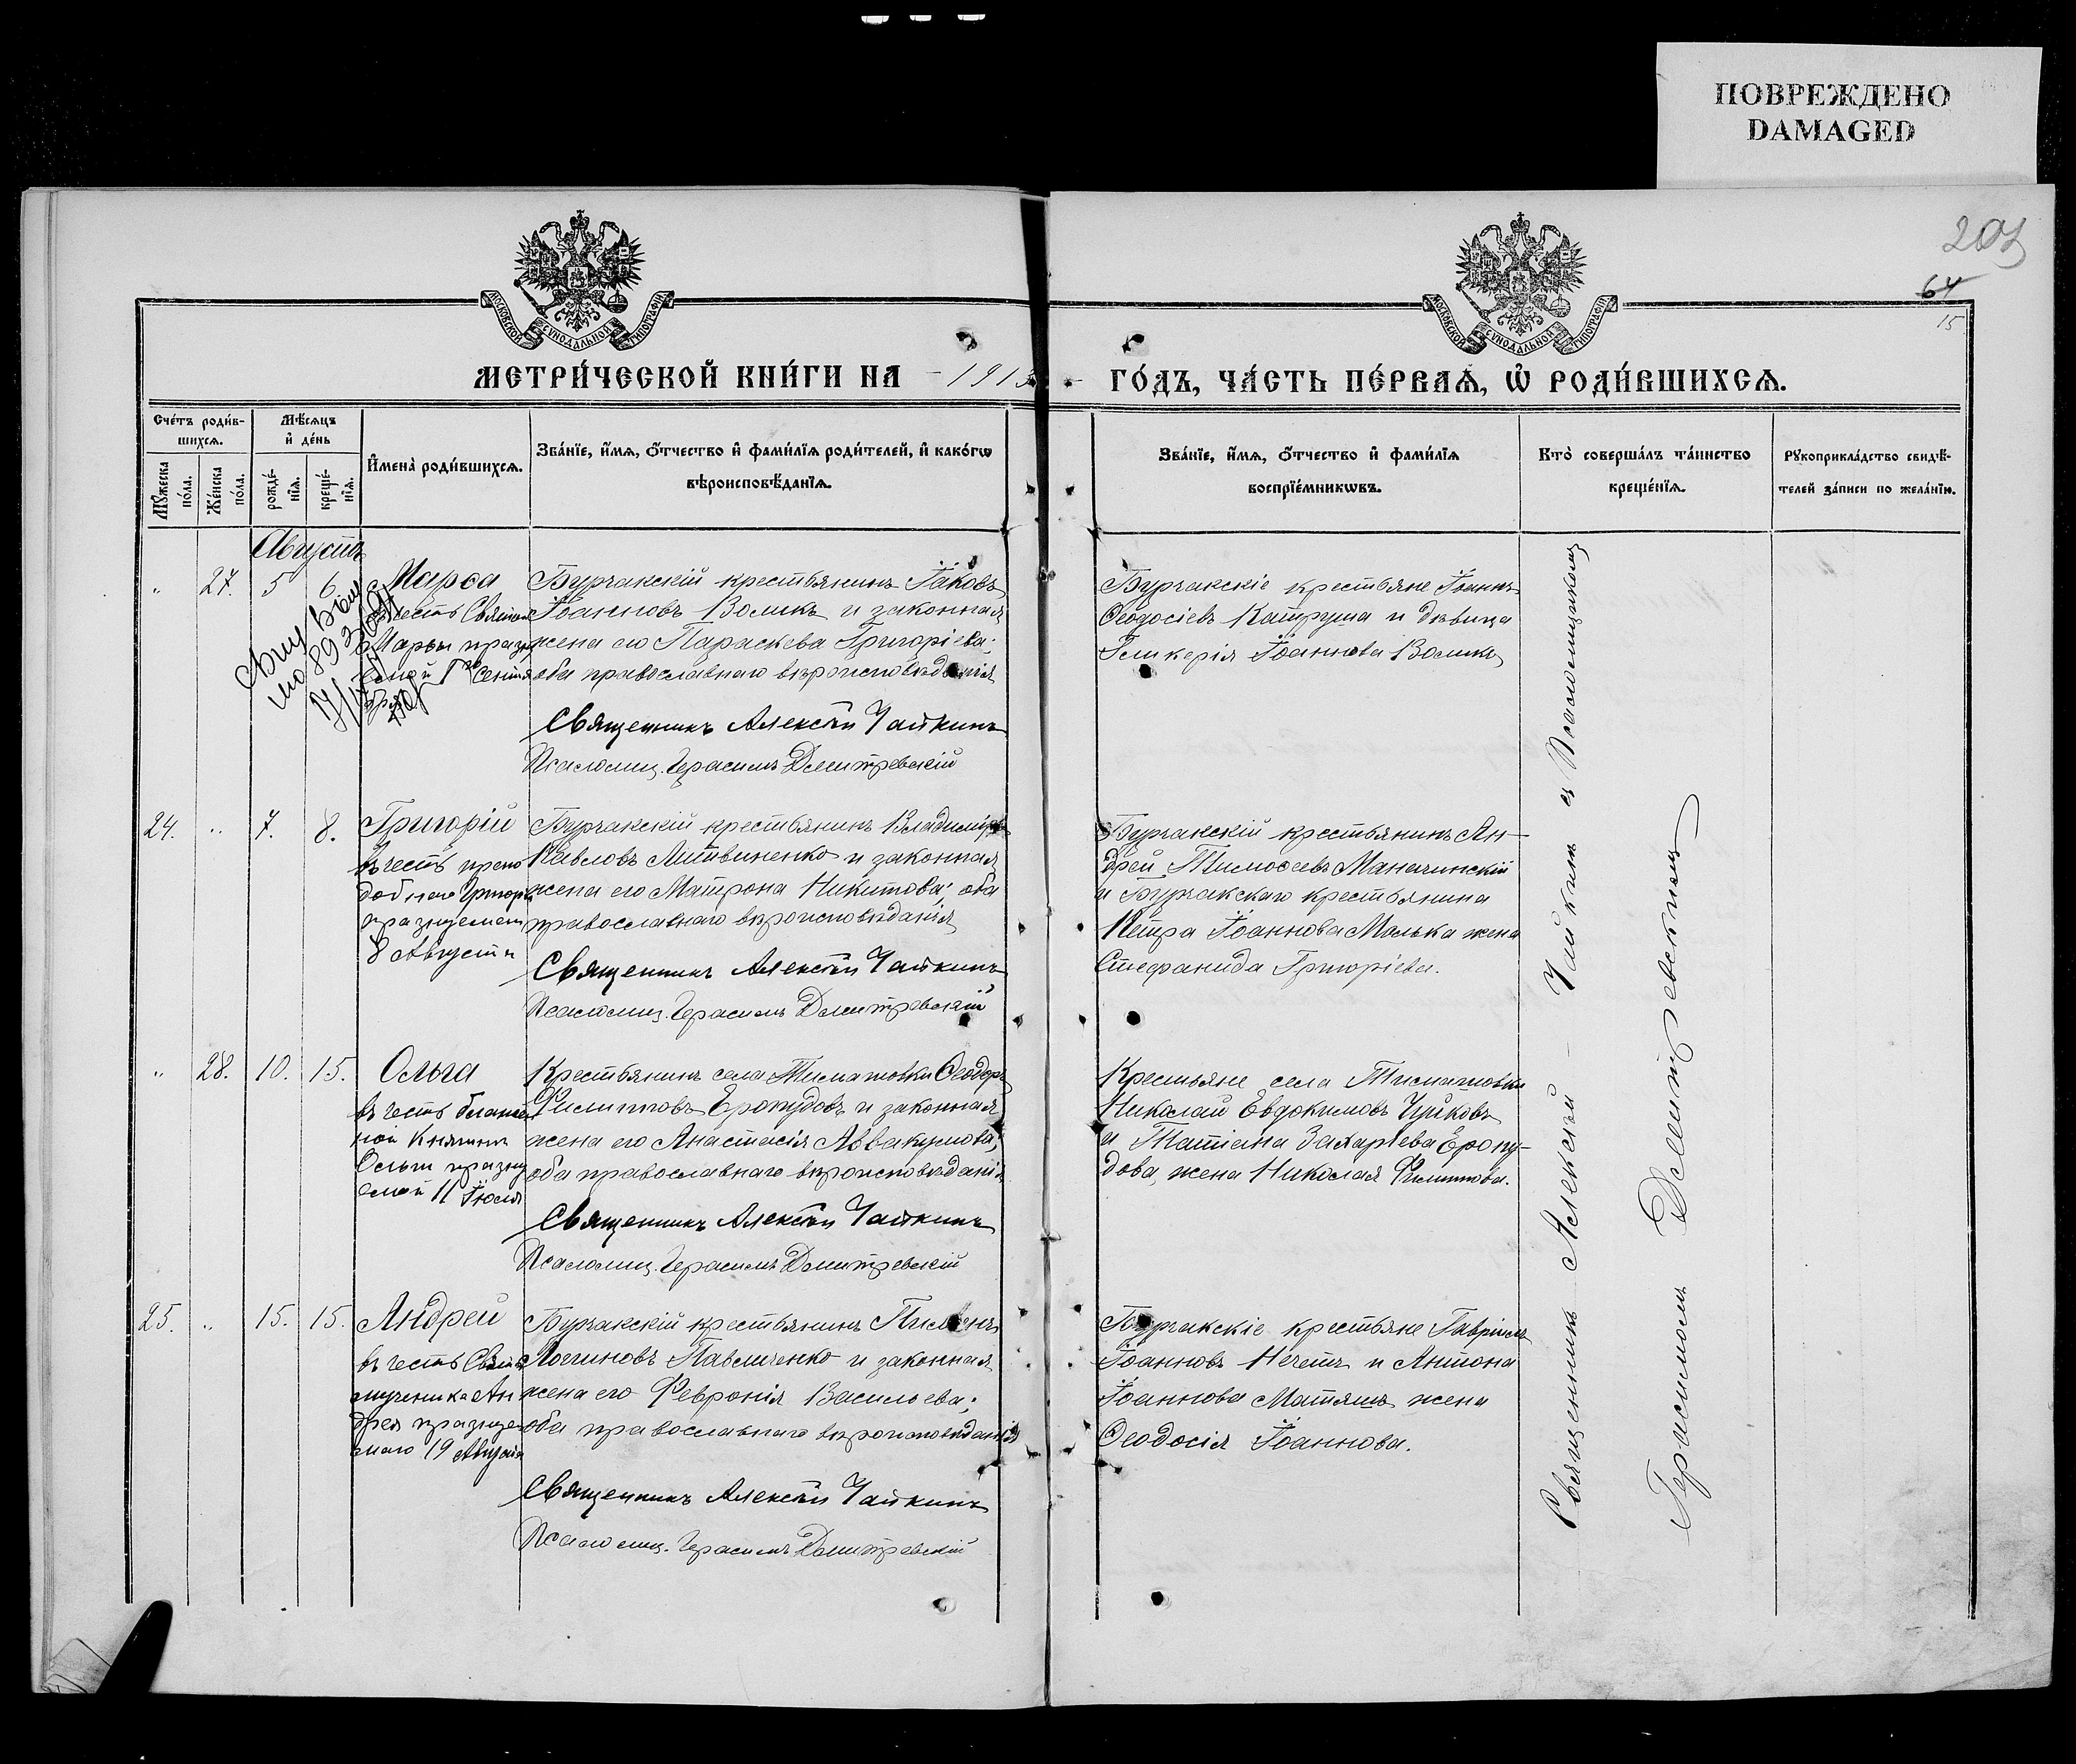 ПОВРЕЖДЕНО
DAMAGED
64
15
МОСКОВСКОЙ СѴНОДАЛЬНОЙ ТИПОГРАФІИ
МОСКОВСКОЙ СѴНОДАЛЬНОЙ ТИПОГРАФІИ
МЕТРИ́ЧЕСКОЙ КНИ́ГИ НА - 1913 - ГО́ДЪ, ЧА́СТЬ ПЕ́РВАѦ, Ѡ҆ РОДИ́ВШИХСѦ.
Сче́тъ роди́в-
шихсѧ.
Мѣ́сѧцъ
и҆ де́нь
Мꙋ́жеска
по́ла.
Же́нска
по́ла.
рожде́-
нїѧ.
креще́-
нїѧ.
И҆мена̀ роди́вшихсѧ.
Зва́нїе, и҆́мѧ, ѻ҆́тчество и҆ фами́лїѧ роди́телей, и҆ како́гѡ
вѣроисповѣ́данїѧ.
Зва́нїе, и҆́мѧ, ѻ҆́тчество и҆ фами́лїѧ
воспрїе́мникѡвъ.
Кто̀ соверша́лъ та́инство
креще́нїѧ.
Рꙋкоприкла́дство свидѣ́-
телей за́писи по жела́нїю.
Августъ
" 27. 5 6. Марѳа
въ честь Святой
Марѳы празну
емой 1го Сентя
бря
Бурчакскій крестьянинъ Іаковъ
Іоанновъ Воликъ и законная
жена его Параскева Григоріева;
оба православнаго вѣроисповѣданія
Священникъ Алексѣй Чайкинъ
Псаломщ. Герасимъ Дмитревскій
Бурчакскіе крестьяне Іоаннъ
Ѳеодосіевъ Катруша и дѣвица
Гликерія Іоаннова Воликъ
24. " 7. 8. Григорій
въ честь препо
добнаго Григорія
празнуемаго
8 Августа
Бурчакскій крестьянинъ Владиміръ
Павловъ Литвиненко и законная
жена его Матрона Никитова; оба
православнаго вѣроисповѣданія
Священникъ Алексѣй Чайкинъ
Псаломщ. Герасимъ Дмитревскій
Бурчакскій крестьянинъ Ан-
дрей Тимоѳеевъ Маначинскій
и Бурчакскаго крестьянина
Петра Іоаннова Малька жена
Стефанида Григоріева.
" 28. 10. 15. Ольга
въ честь блажен
ной Княгини
Ольги празну
емой 11 Іюля
Крестьянинъ села Тимашовки Ѳеодоръ
Филипповъ Еропудовъ и законная
жена его Анастасія Аввакумова;
оба православнаго вѣроисповѣданія
Священникъ Алексѣй Чайкинъ
Псаломщ. Герасимъ Дмитревскій
Крестьяне села Тимашовки
Николай Евдокимовъ Чуйковъ
и Татіана Захаріева Еропу-
дова, жена Николая Филиппова.
25. " 15. 15. Андрей
въ честь Свят.
мученика Ан
дрея празнуе
маго 19 Августа
Бурчакскій крестьянинъ Пименъ
Логгиновъ Павличенко и законная
жена его Февронія Васильева;
оба православнаго вѣроисповѣданія
Священникъ Алексѣй Чайкинъ
Псаломщ. Герасимъ Дмитревскій
Бурчакскіе крестьяне Гавріилъ
Іоанновъ Нечетъ и Антона
Іоаннова Матяшъ жена
Ѳеодосія Іоаннова.
Священникъ Алексѣй Чайкинъ съ Псаломщикомъ
Герасимомъ Дмитревскимъ